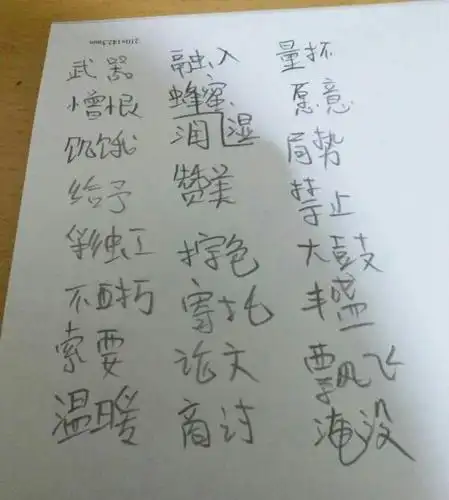 武器 融入 量杯
憎恨 蜂蜜 愿意
饥饿 湿 局势
给予 赞美 禁止
彩虹 色 大鼓
不 寄托 丰盛
索要 论文 飘飞
温暖 商讨 淹没